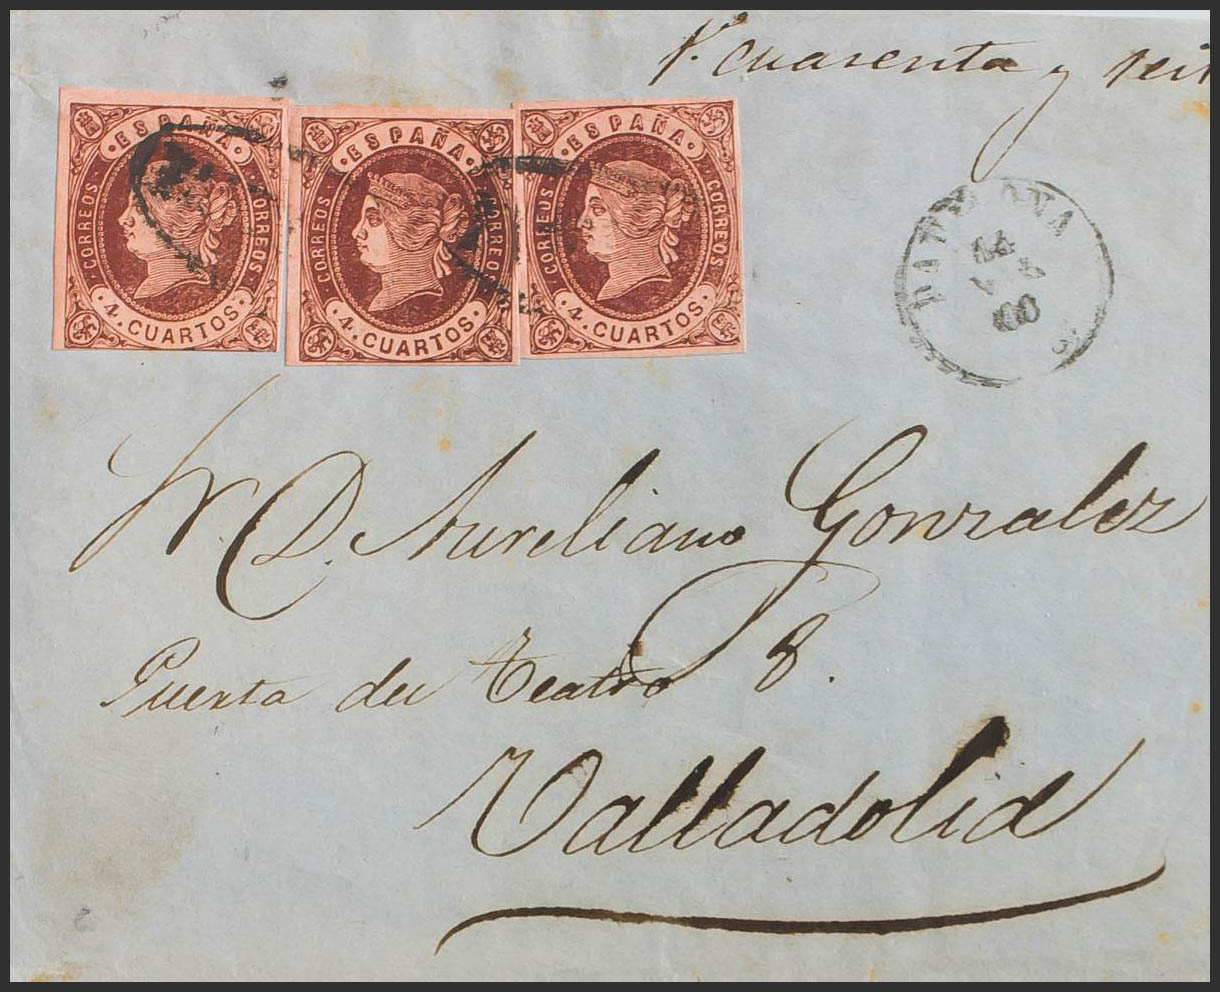 cuarenta y seis
ESPAÑA
CORREOS
CORREOS
4. CUARTOS
ESPAÑA
CORREOS
CORREOS
4. CUARTOS
ESPAÑA
CORREOS
CORREOS
4. CUARTOS
Sr. D. Aureliano Gonzalez
Puerta del Teatro 8.
Valladolid